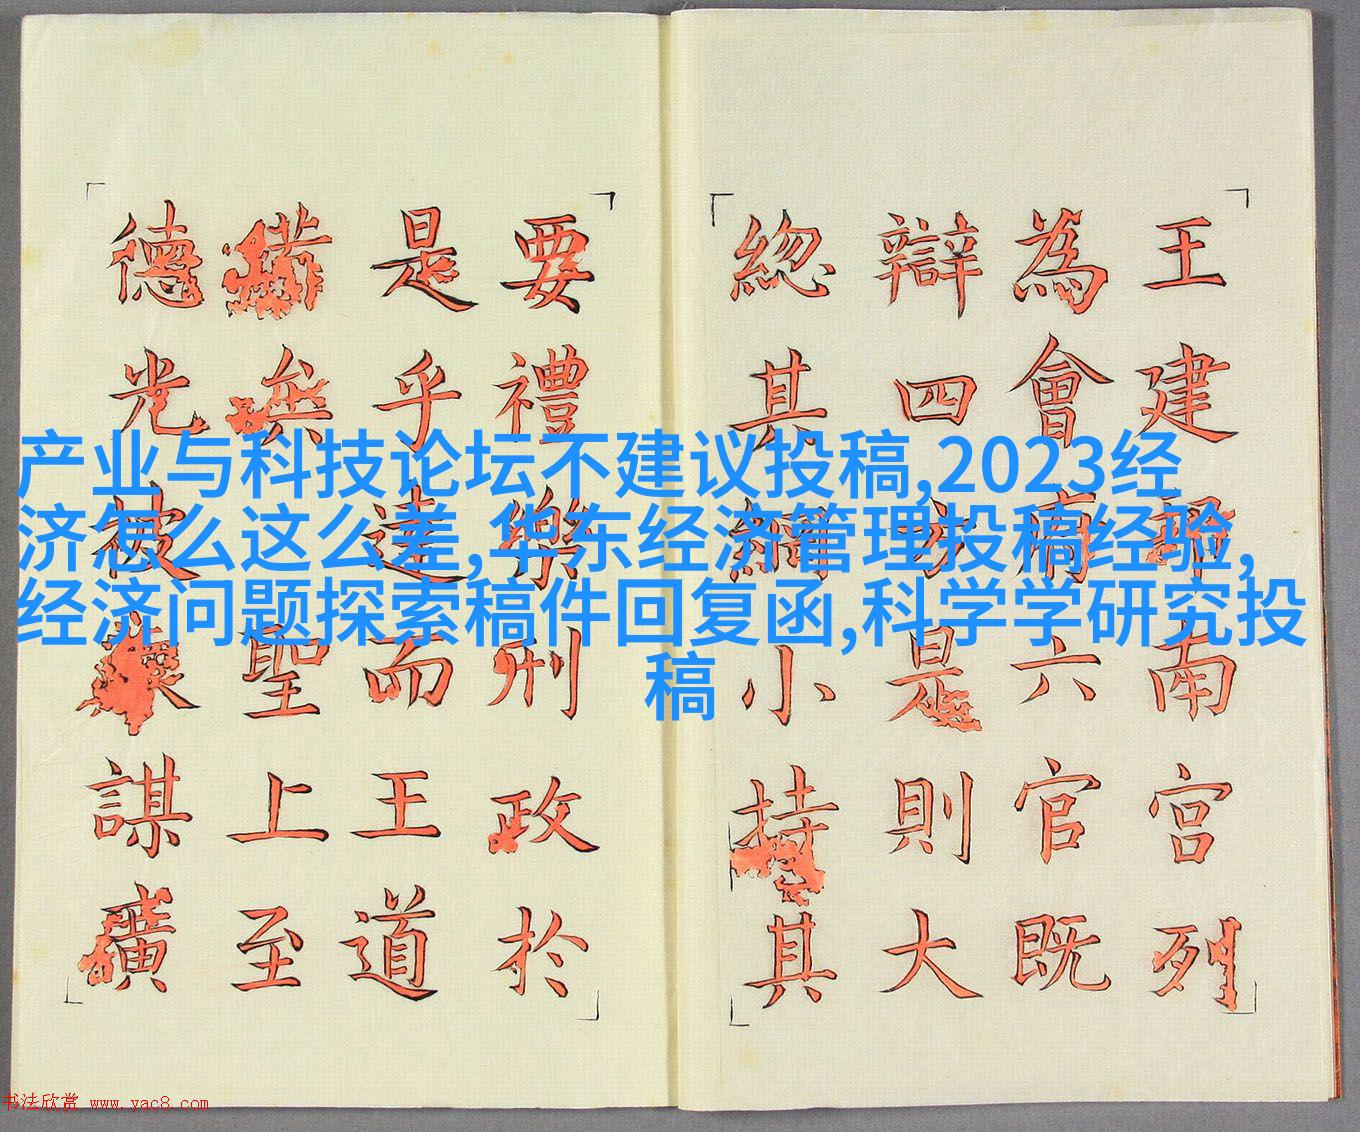 产业与科技论坛不建议投稿,2023经
济怎么这么差,华东经济管理投稿经验,
经济问题探索稿件回复函,科学学研究投
稿
王建南宮列
為會府六官既
辯四方是則大
緫其小持其
要禮樂刑政於
是乎達而王道
備矣聖上至
德光被謀
书法欣赏 www.yac8.com